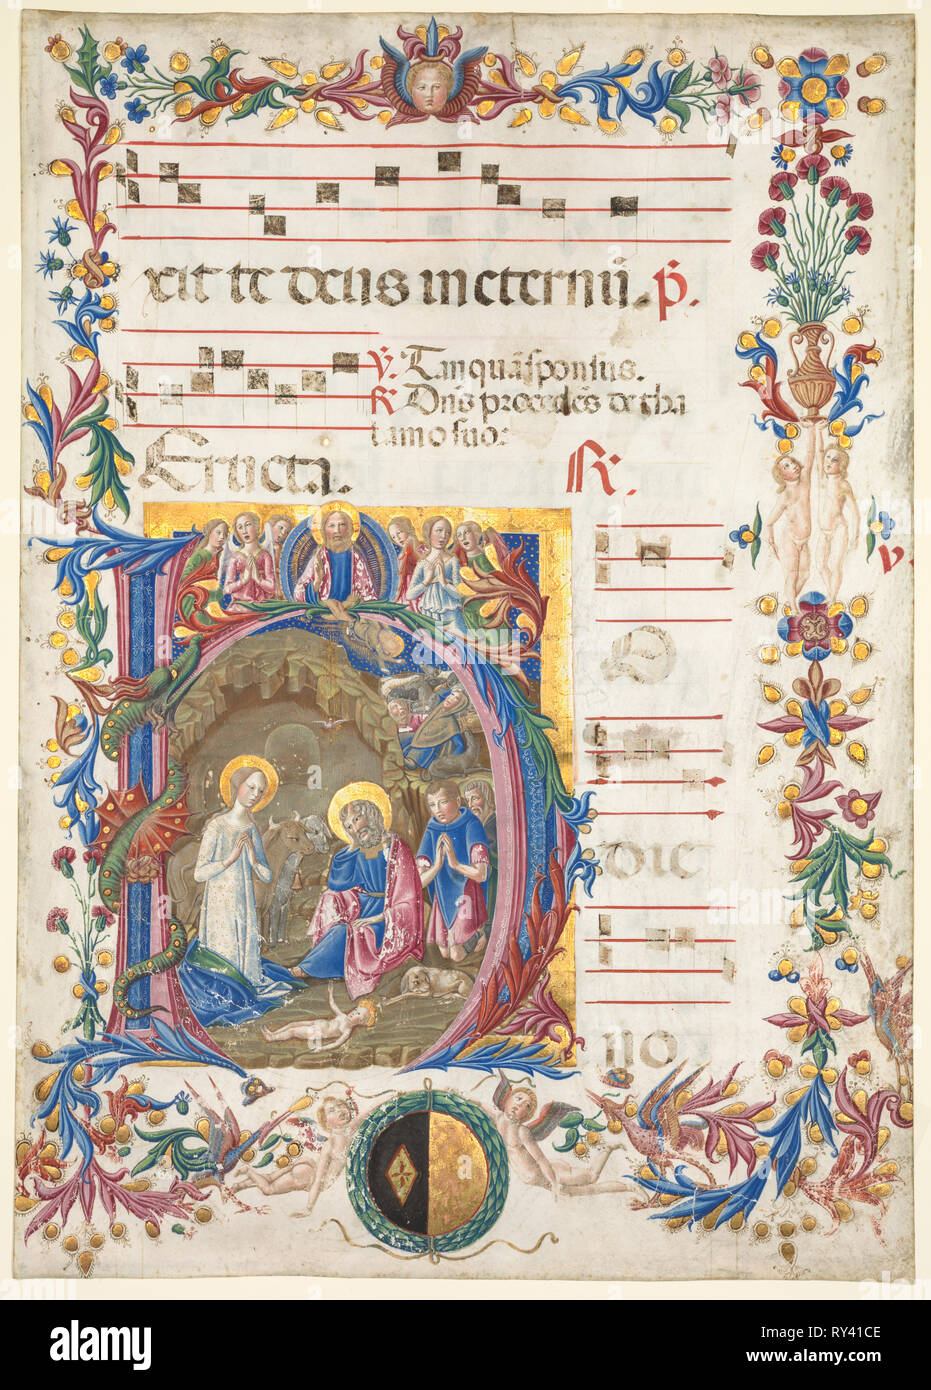 xit te deus in eternū. P̄.
V̄. Tanquā sponsus.
R̄ Dn̄s procedēs de tha
lamo suo:
Eructa. R̄.
v.
H
D
dic
no
alamy
Image ID: RY41CE
www.alamy.com